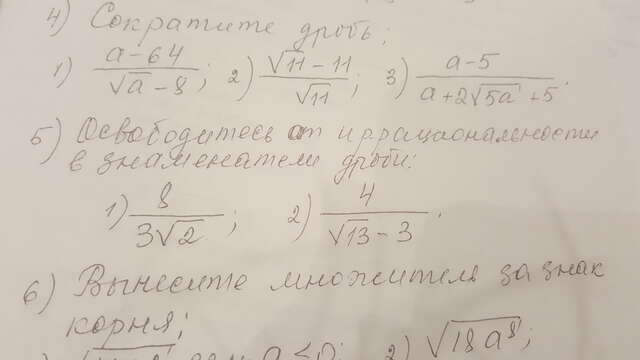 4) Сократите дробь:
1) a-64/√a-8; 2) √11-11/√11; 3) a-5/a+2√5a+5;
5) Освободитесь от иррациональности
в знаменателе дроби:
1) 8/3√2; 2) 4/√13-3;
6) Вынесите множитель за знак
корня:
если a<0; 2) √18a⁸;